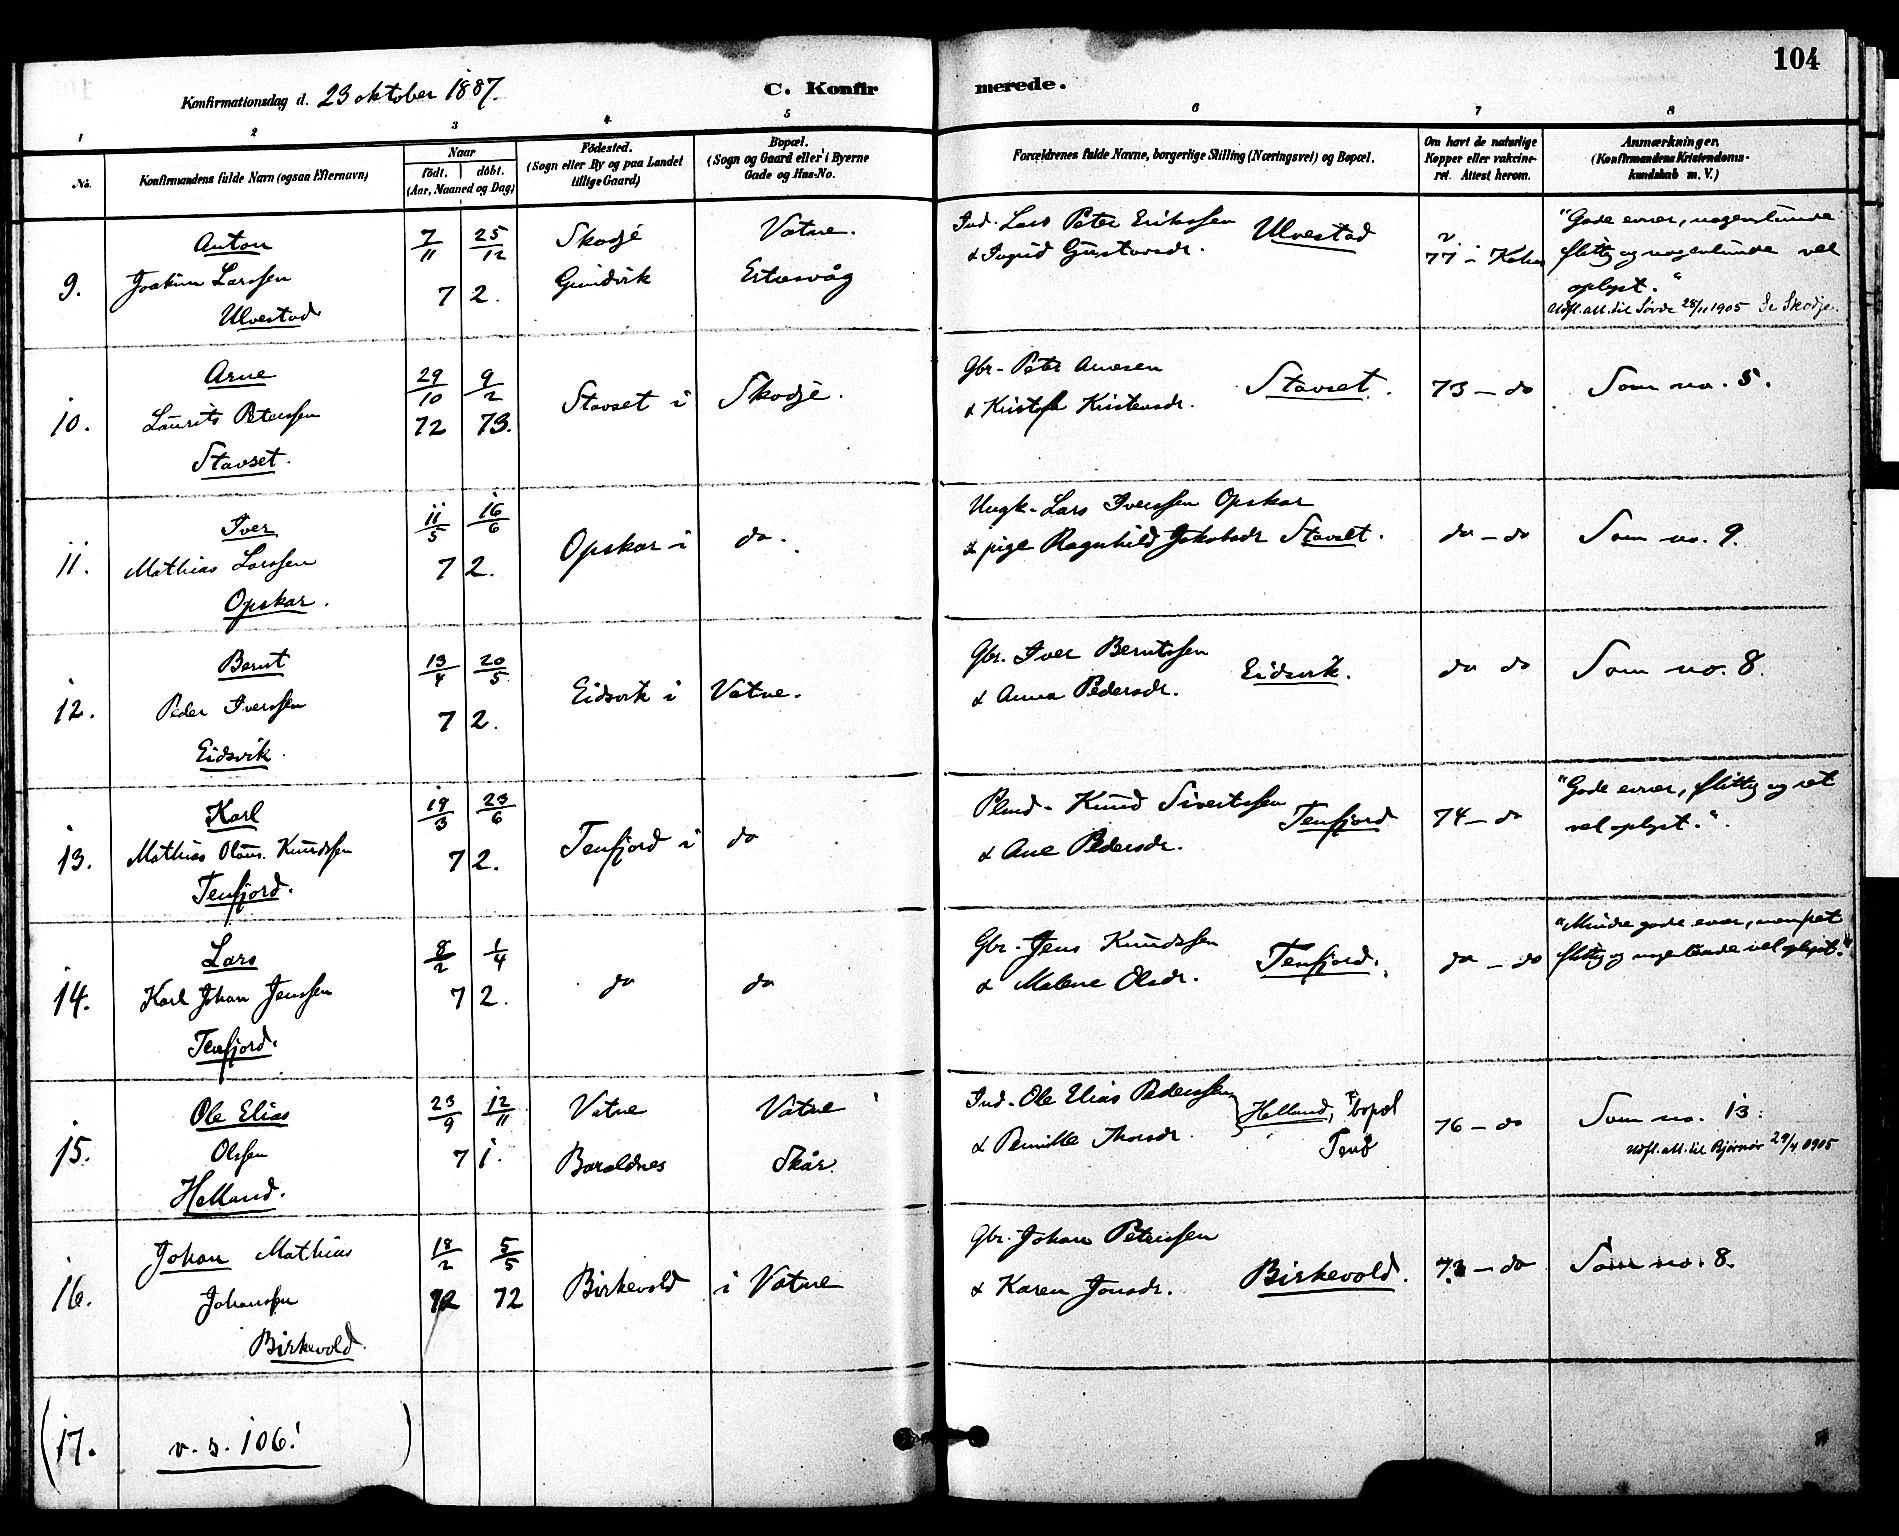 104
Konfirmationsdag d. 23 oktober 1887.
C. Konfirmerede.
1 2 3 4 5 6 7 8
No.
Konfirmandens fulde Navn (ogsaa Efternavn)
Naar
født. døbt.
(Aar, Maaned og Dag)
Fødested.
(Sogn eller By og paa Landet
tillige Gaard)
Bopæl.
(Sogn og Gaard eller i Byerne
Gade og Hus-No.
Forældrenes fulde Navne, borgerlige Stilling (Næringsvei) og Bopæl.
Om havt de naturlige
Kopper eller vakcine-
ret. Attest herom.
Anmærkninger.
(Konfirmandens Kristendoms-
kundskab m. V.)
9.
Anton
Joakim Larssen
Ulvestad
7/11 25/12
72.
Skodje
Vatne.
Ind. Lars Peter Erikssen
& Ingrid Gustavsdr.
Ulvestad
77 -
"Gode evner, nogenlunde
flittig og nogenlunde vel
oplyst."
Udfl. att. til 28/11 1905
10.
Arne
Laurits Peterssen
Stavset.
29/10 9/2
72 73.
Stavset i Skodje.
Gbr. Peter Arnesen
& Kristensdr.
Stavset.
73 - do
Som no. 5.
11.
Iver
Mathias Larssen
Opskar.
11/5 16/6
72.
Opskar i do.
Ungk. Lars Iverssen Opskar
& pige Ragnhild Jakobsdr Stavset.
do - do
Som no. 9.
12.
Bernt
Peder Iverssen
Eidsvik.
13/4 20/5
72.
Eidsvik i Vatne.
Gbr. Iver Berntssen
& Anna Pedersdr.
Eidsvik.
do do
Som no. 8.
13.
Karl
Mathias Olaus. Knudssen
Tenfjord.
19/3 23/6
72.
Tenfjord i do
Knud Sivertssen
& Ane Pedersdr.
Tenfjord
74 - do
"Gode evner, flittig og ret
vel oplyst."
14.
Lars
Karl Johan Jenssen
Tenfjord.
8/2 1/4
72.
do do
Gbr. Jens Knudssen
& Malene Olsdr.
Tenfjord.
do - do
"Mindre gode evner, men ret
flittig og nogenlunde vel oplyst."
15.
Ole Elias
Olssen
Helland.
23/9 12/11
71.
Vatne
Baraldnes
Vatne
Skår.
Ind. Ole Elias Pederssen
& Pernille Thorsdr.
Helland, bopæl
76 - do
Som no. 13.
Udfl. att. til Bjørnør 29/4 1905
16.
Johan Mathias
Johanssen
Birkevold.
18/2 5/5
72 72
Birkevold i Vatne
Gbr. Johan Peterssen
& Karen Jonsdr.
Birkevold.
73 - do
Som no. 8.
(17.
v. s. 106!)